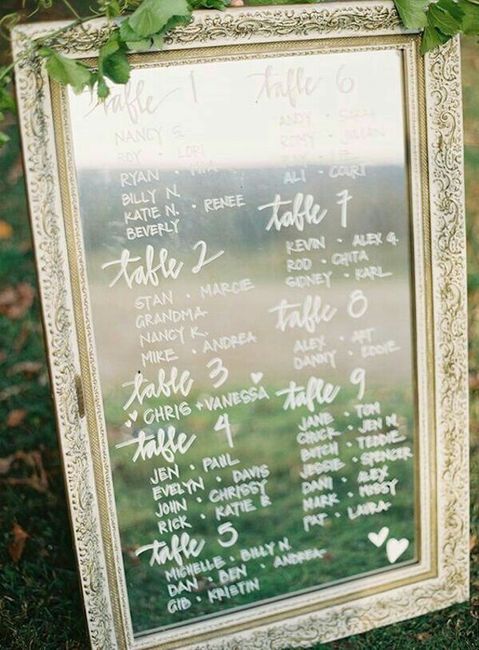 table 1
NANCY S.
ROY · LORI
RYAN ·
BILLY N.
KATIE N. · RENEE
BEVERLY
table 2
STAN · MARCIE
GRANDMA
NANCY K.
MIKE · ANDREA
table 3
CHRIS + VANESSA
table 4
JEN · PAUL
EVELYN · DAVIS
JOHN · CHRISSY
RICK · KATIE B
table 5
MICHELLE · BILLY N.
DAN · BEN · ANDREA
GIB · KRISTIN
table 6
ANDY · SARAH
ROMY · JULIAN
ALI · COURT
table 7
KEVIN · ALEX G.
ROD · CHITA
SIDNEY · KARL
table 8
ALEX · ART
DANNY · EDDIE
table 9
JANE · TOM
CHUCK · JEN M.
BUTCH · TEDDIE
JESSIE · SPENCER
DANI · ALEX
MARK · MISSY
PAT · LAURA